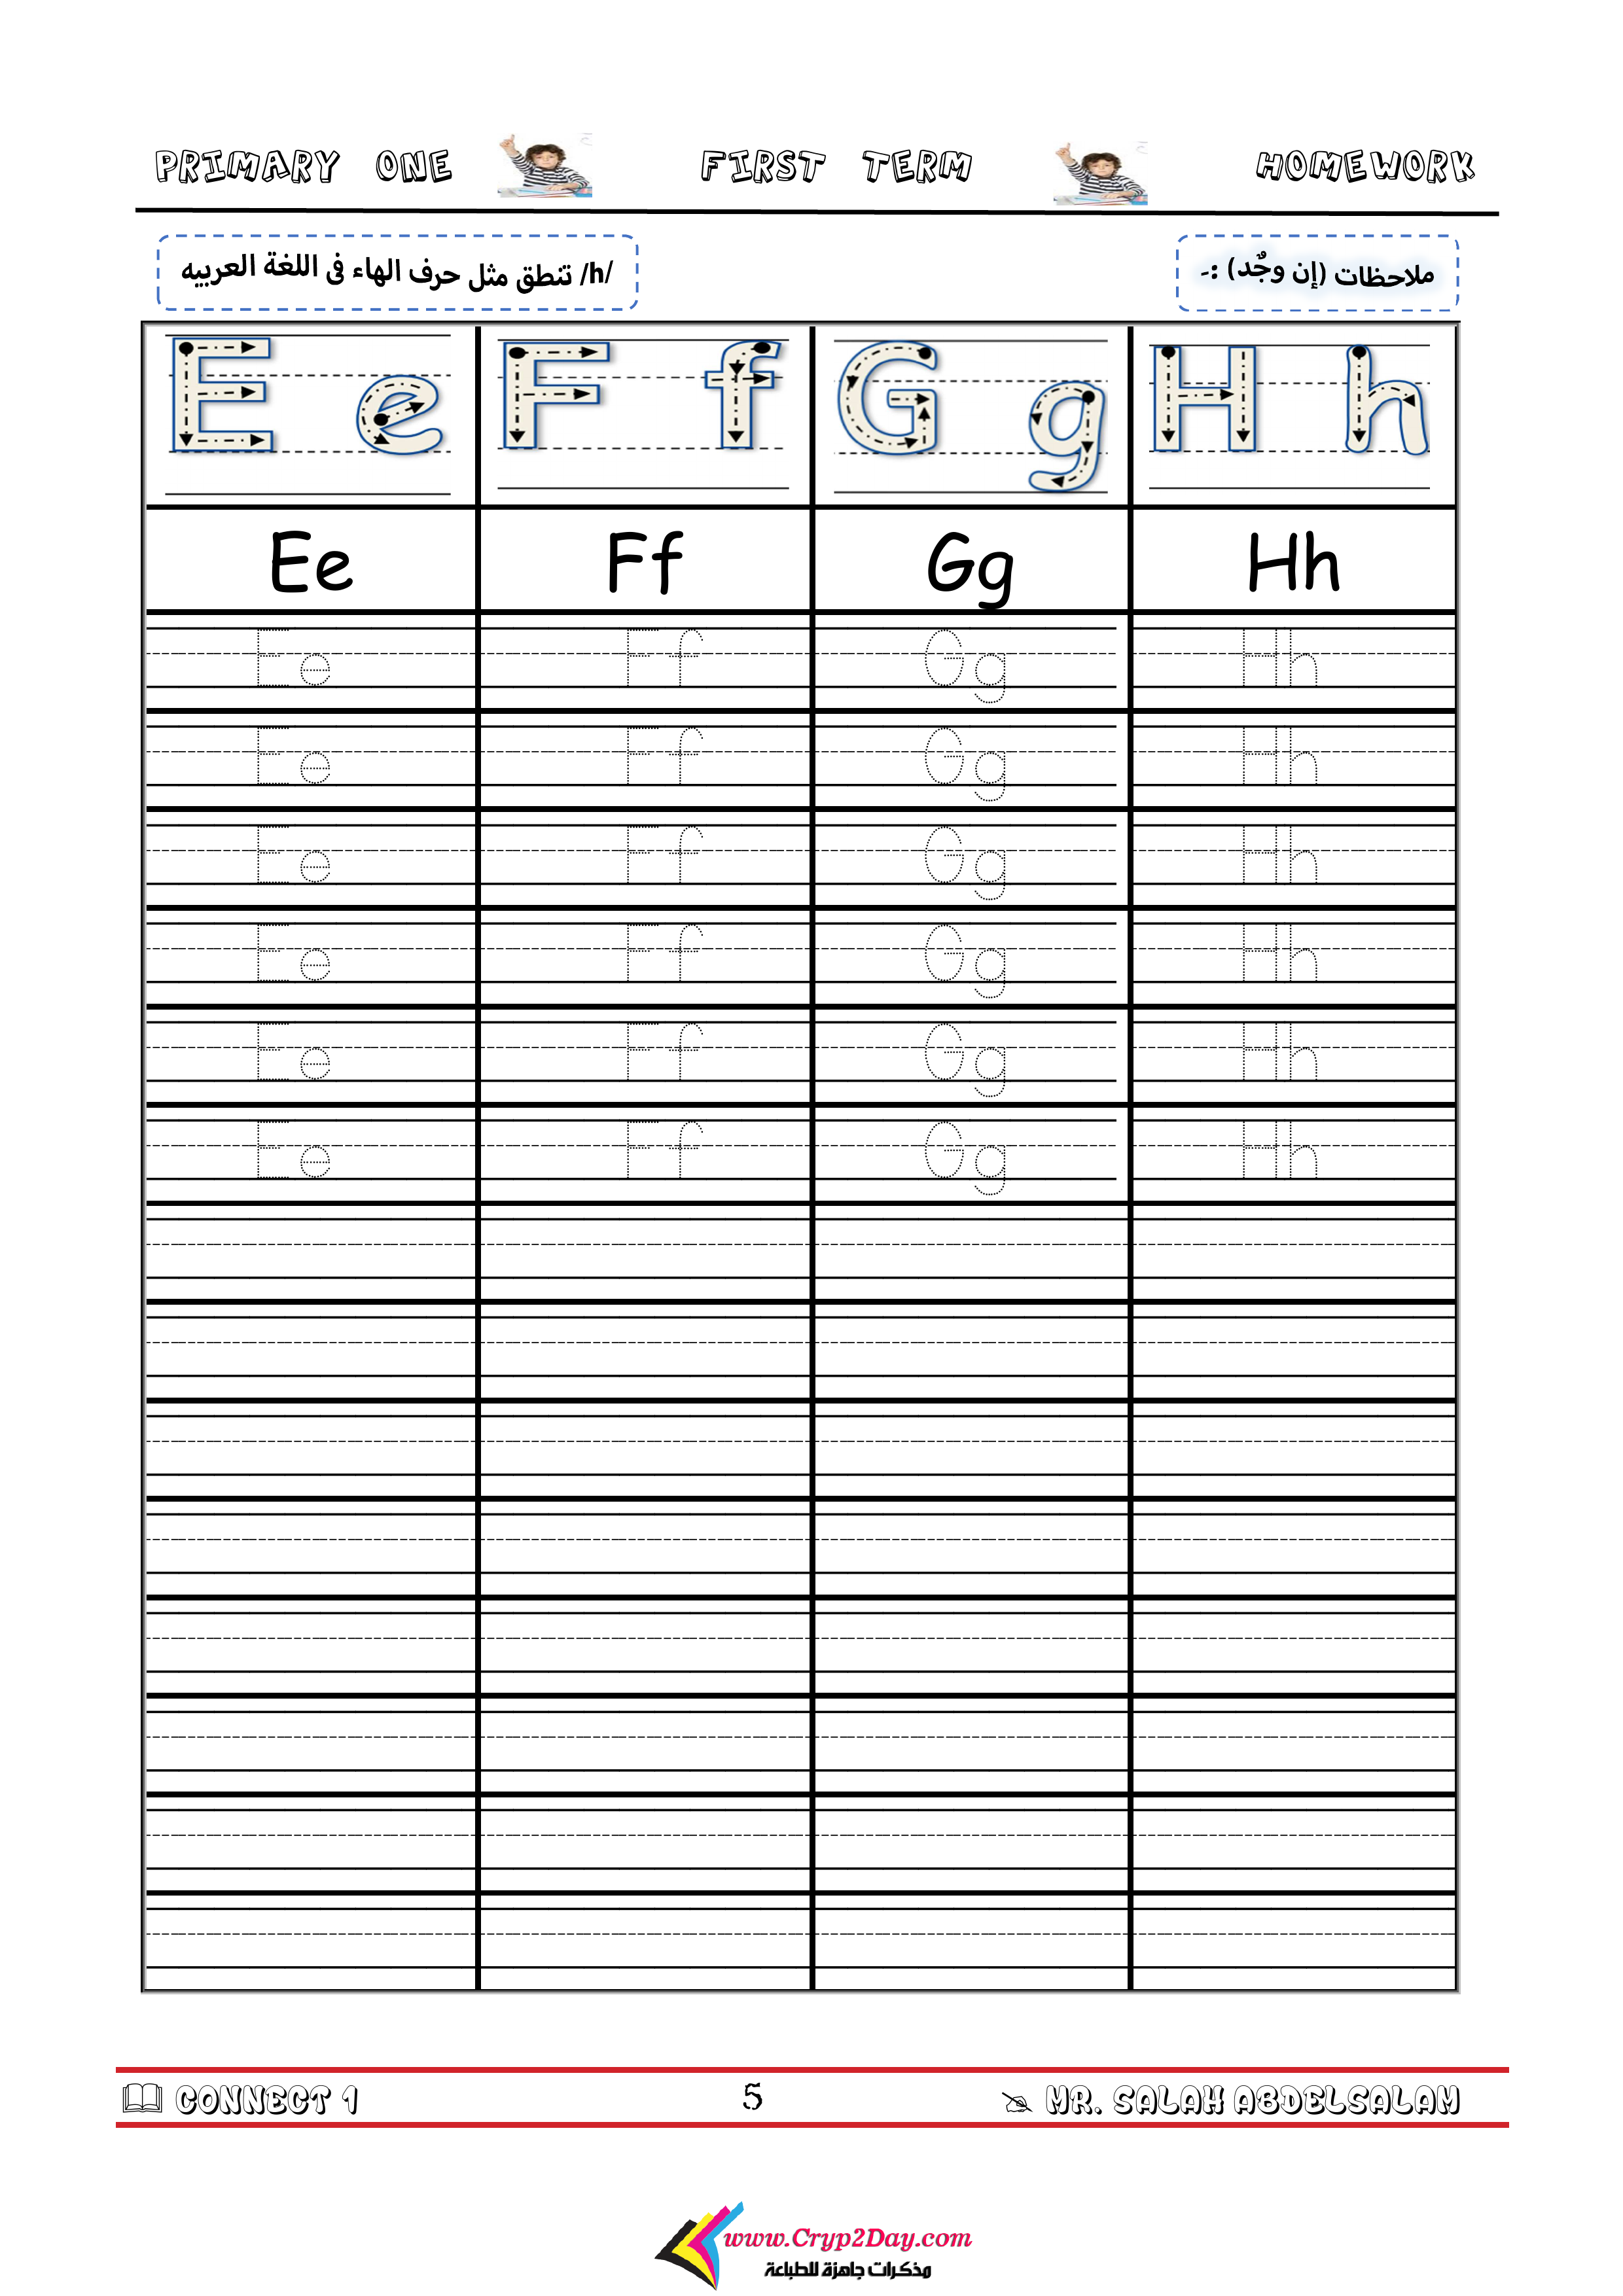 PRIMARY ONE FIRST TERM HOMEWORK
ملاحظات (إن وجٌد) :-
/h/ تنطق مثل حرف الهاء فى اللغة العربيه
E e F f G g H h
Ee Ff Gg Hh
Ee Ff Gg Hh
Ee Ff Gg Hh
Ee Ff Gg Hh
Ee Ff Gg Hh
Ee Ff Gg Hh
Ee Ff Gg Hh
CONNECT 1 5 MR. SALAH ABDELSALAM
www.Cryp2Day.com
مذكرات جاهزة للطباعة